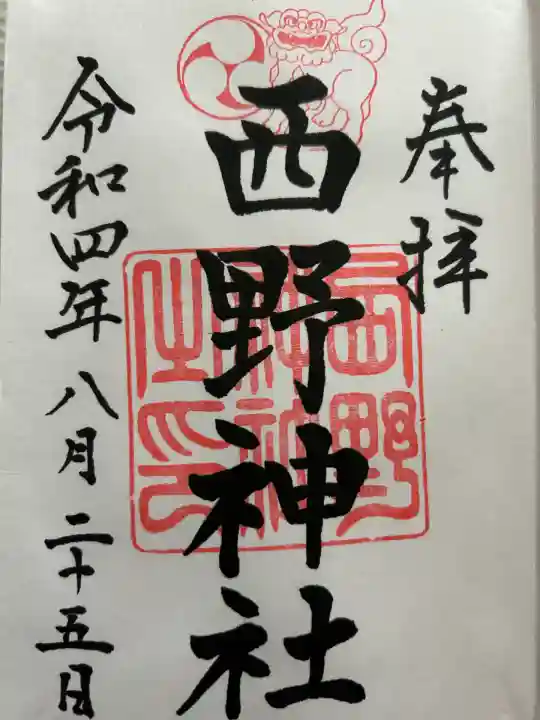 奉拝
西野神社
令和四年八月二十五日
西野
神社
之印